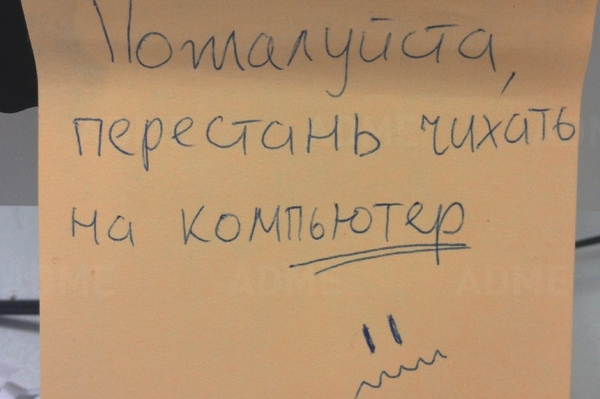 Пожалуйста,
перестань чихать
на компьютер
ADME
ADME
ADME